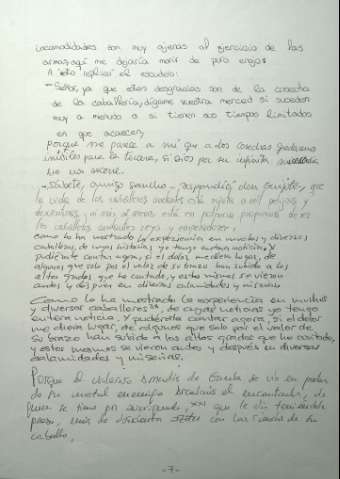 incomodidades son muy ajenas al ejercicio de las
armas, aquí me dejaría morir de puro enojo.
A esto replicó el escudero:
- Señor, ya que estas desgracias son de la cosecha
de la caballería, dígame vuestra merced si suceden
muy a menudo o si tienen sus tiempos limitados
en que acaecen;
Porque me parece a mí que a dos cosechas quedaremos
inútiles para la tercera, si Dios por su infinita misericordia
no nos socorre.
- Sábete, amigo Sancho - respondió don Quijote, que
la vida de los caballeros andantes está sujeta a mil peligros y
desventuras, y ni más ni menos está en potencia propincua de ser
los caballeros andantes reyes y emperadores,
como lo ha mostrado la experiencia en muchos y diversos
caballeros, de cuyas historias yo tengo entera noticia. Y
pudiérate contar agora, si el dolor me diera lugar, de
algunos que sólo por el valor de su brazo han subido a los
altos grados que he contado, y estos mismos se vieron
antes y después en diversas calamidades y miserias.
Como lo ha mostrado la experiencia en muchos
y diversos caballeros, de cuyas historias yo tengo
entera noticia. Y pudiérate contar agora, si el dolor
me diera lugar, de algunos que sólo por el valor de
su brazo han subido a los altos grados que he contado,
y estos mesmos se vieron antes y después en diversas
calamidades y miserias.
Porque el valeroso Amadís de Gaula se vio en poder
de su mortal enemigo Arcaláus el encantador, de
quien se tiene por averiguado, que le dio teniéndole
preso, más de doscientos con las riendas de su
caballo,
- 7 -